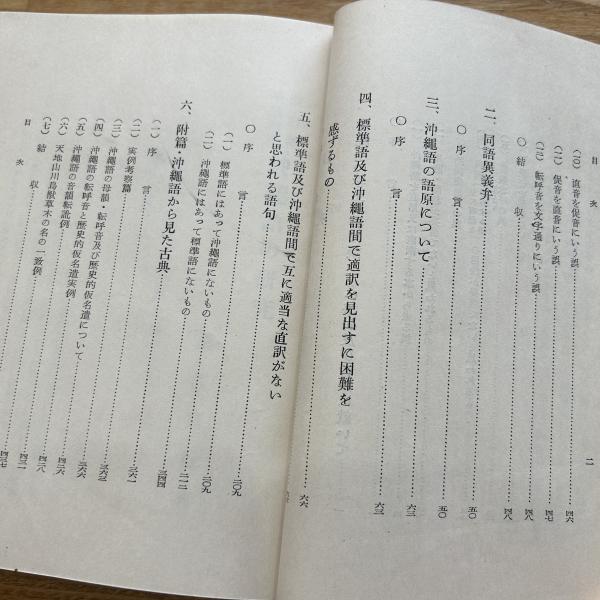 目次
二
(二〇) 直音を促音にいう誤……四六
(二一) 促音を直音にいう誤……四七
(二二) 転呼音を文字通りにいう誤……四八
〇 結収……四八
二、同語異義弁……五〇
〇 序言……五〇
三、沖縄語の語原について……六三
〇 序言……六三
四、標準語及び沖縄語間で適訳を見出すに困難を
感ずるもの……六六
五、標準語及び沖縄語間で互に適当な直訳がない
と思われる語句
〇 序言……二〇九
(一) 標準語にはあって沖縄語にないもの……二〇九
(二) 沖縄語にはあって標準語にないもの……二一二
六、附篇・沖縄語から見た古典……三四四
(一) 序言
(二) 実例考察篇……三六一
(三) 沖縄語の母韻・転呼音及び歴史的仮名遣について……三六三
(四) 沖縄語の転呼音と歴史的仮名遣実例……三六六
(五) 沖縄語の音韻転訛例……四二六
(六) 天地山川鳥獣草木の名の一致例……四二八
(七) 結収……四三一
目次
四三七